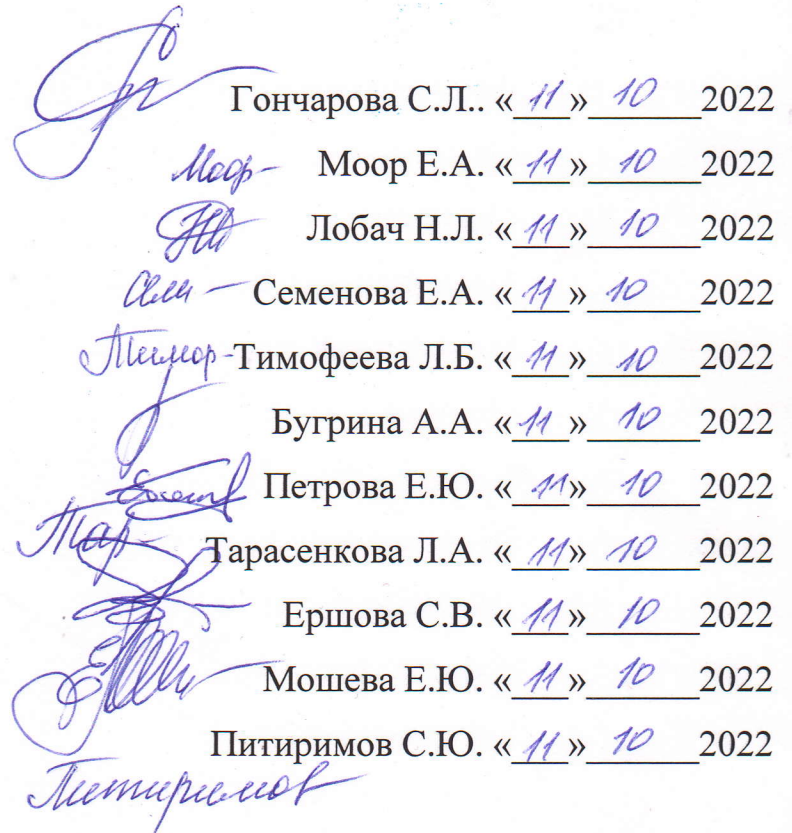 Гончарова С.Л.. «11» 10 2022
Моор- Моор Е.А. «11» 10 2022
Лобач Н.Л. «11» 10 2022
Сем- Семенова Е.А. «11» 10 2022
Тимоф- Тимофеева Л.Б. «11» 10 2022
Бугрина А.А. «11» 10 2022
Петрова Е.Ю. «11» 10 2022
Тар- Тарасенкова Л.А. «11» 10 2022
Ершова С.В. «11» 10 2022
Мошева Е.Ю. «11» 10 2022
Питиримов С.Ю. «11» 10 2022
Питиримов